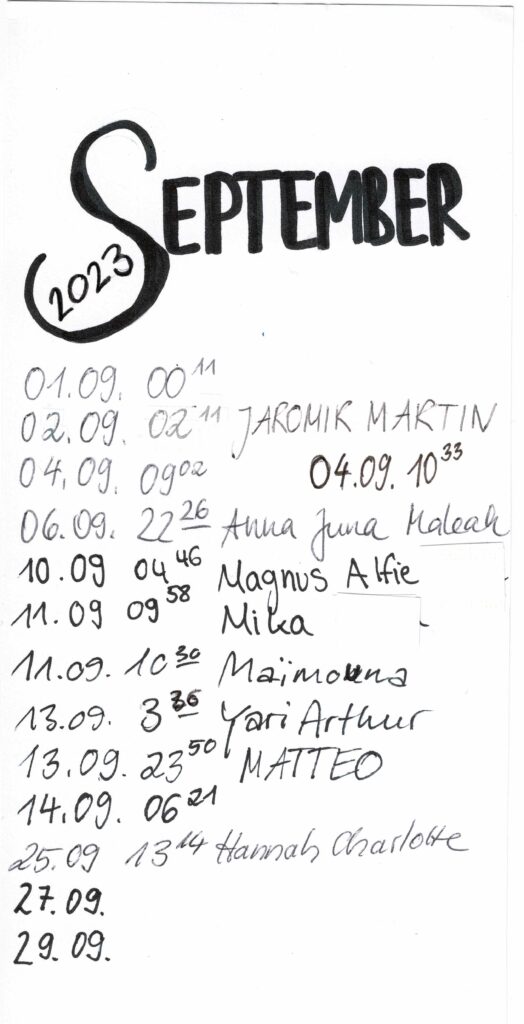 SEPTEMBER
2023
01.09. 00¹¹
02.09. 02¹¹ JAROMIK MARTIN
04.09. 09⁰² 04.09. 10³³
06.09. 22²⁶ Anna Juna Maleah
10.09 04⁴⁶ Magnus Alfie
11.09 09⁵⁸ Mika
11.09. 10³⁰ Maïmouna
13.09. 3³⁶ Yari Arthur
13.09. 23⁵⁰ MATTEO
14.09. 06²¹
25.09 13¹⁴ Hannah Charlotte
27.09.
29.09.